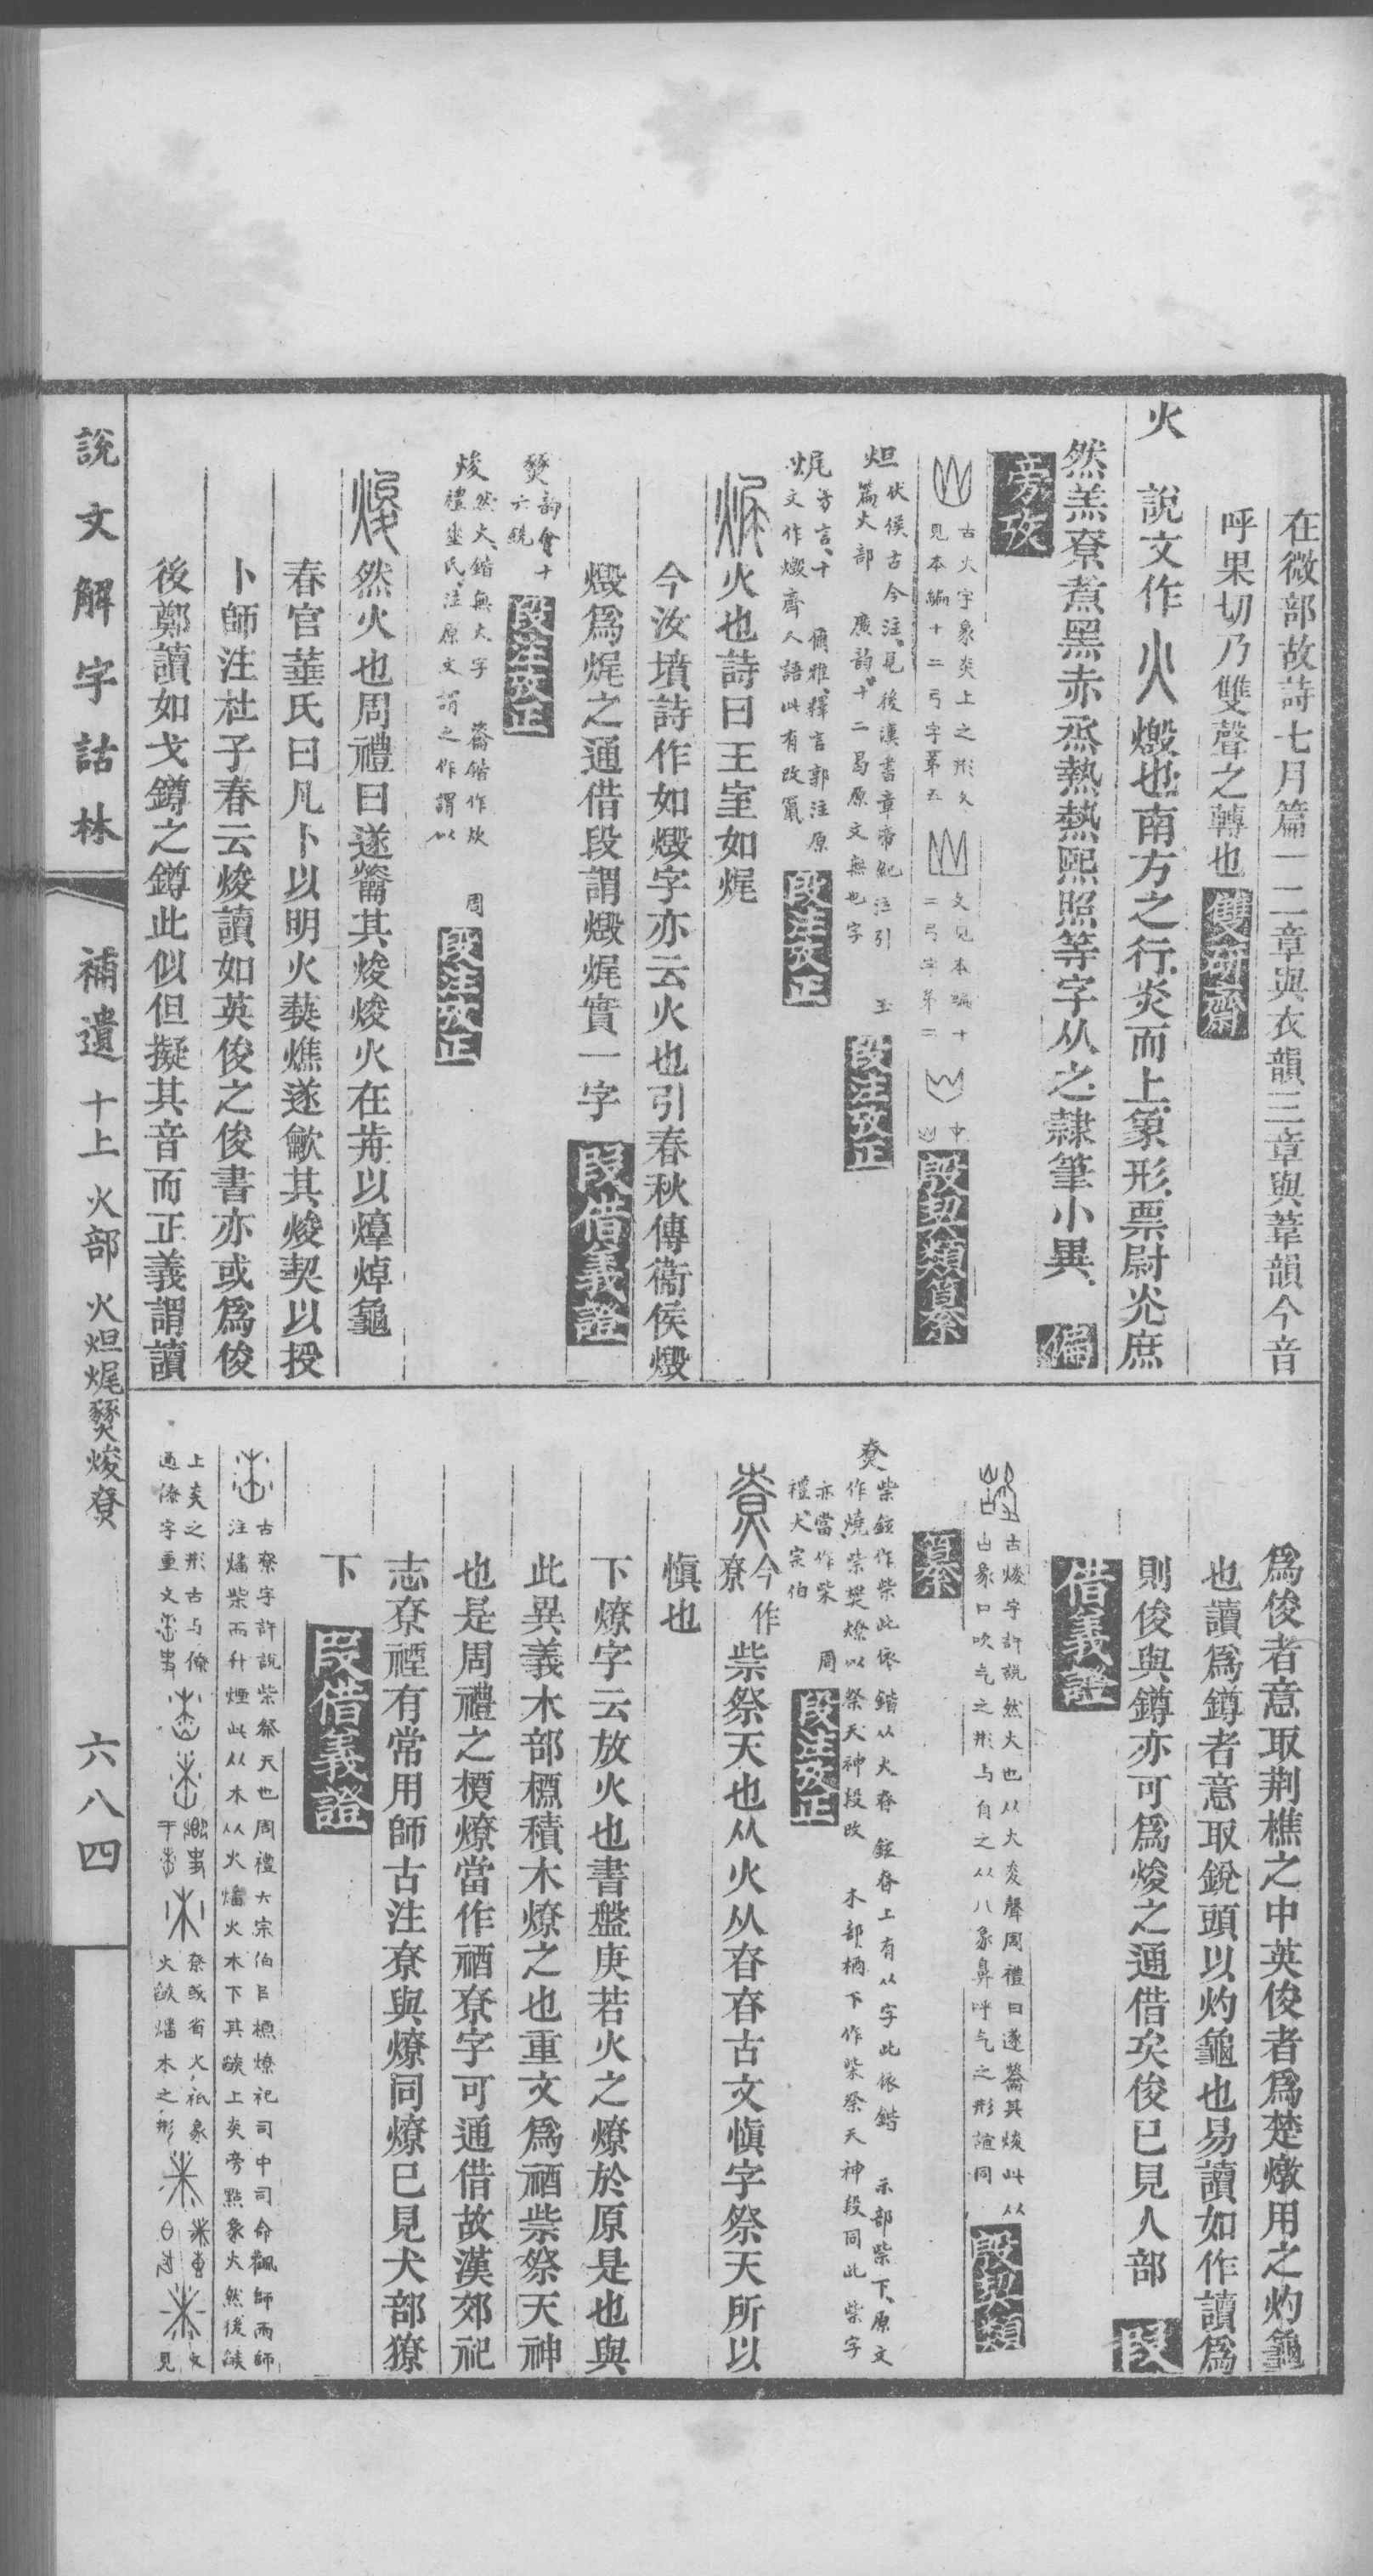 在微部故詩七月篇一二章與衣韻三章與葦韻今音
呼果切乃雙聲之轉也 雙研齋
火 說文作火燬也南方之行炎而上象形票尉光庶
然羔尞煮黑赤烝熱爇熙照等字从之隷筆小異 偏
旁攷
古火字象炎上之形文
見本編十二弓字第五
文見本編十
二弓字第三
殷契類纂
炟 伏侯古今注見後漢書章帝紀注引 玉
篇火部 廣韵十二曷原文無也字 段注攷正
㷄 方言十 爾雅釋言郭注原
文作燬齊人語此有改竄 段注攷正
㷄 火也詩曰王室如㷄
今汝墳詩作如燬字亦云火也引春秋傳衞侯燬
燬爲㷄之通借段謂燬㷄實一字 段借義證
燹 韵會十
六銑 段注攷正
焌 然火鍇無火字 爚鍇作炊 周
禮菙氏注原文謂之作謂以 段注攷正
焌 然火也周禮曰遂爚其焌焌火在前以焞焯龜
春官菙氏曰凡卜以明火爇燋遂龡其焌契以授
卜師注杜子春云焌讀如英俊之俊書亦或爲俊
後鄭讀如戈鐏之鐏此似但擬其音而正義謂讀
爲俊者意取荆樵之中英俊者爲楚燉用之灼龜
也讀爲鐏者意取銳頭以灼龜也易讀如作讀爲
則俊與鐏亦可爲焌之通借矣俊已見人部 叚
借義證
古焌字許說然火也从火夋聲周禮曰遂爚其焌此从
凷象口吹气之形与自之从八象鼻呼气之形誼同 殷契類
纂
尞 柴鉉作祡此依鍇从火昚 鉉昚上有从字此依鍇 示部祡下原文
作燒柴焚燎以祭天神段改 木部槱下作柴祭天神段同此柴字
亦當作祡 周
禮大宗伯 段注攷正
尞 今作
尞 祡祭天也从火从昚昚古文愼字祭天所以
愼也
下燎字云放火也書盤庚若火之燎於原是也與
此異義木部槱積木燎之也重文爲禉祡祭天神
也是周禮之槱燎當作禉尞字可通借故漢郊祀
志尞禋有常用師古注尞與燎同燎已見犬部獠
下 叚借義證
古尞字許說柴祭天也周禮大宗伯㠯槱燎祀司中司命飌師雨師
注燔柴而升煙此从木从火燔火木下其燄上炎旁點象火然後燄
上炎之形古与僚
通僚字重文
尞或省火祇象
火燄燔木之形
文
見
說文解字詁林 補遺 十上 火部 火炟㷄燹焌尞 六八四